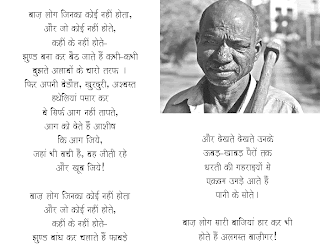 बाज़ लोग जिनका कोई नहीं होता,
और जो कोई नहीं होते,
कहीं के नहीं होते-
झुण्ड बना कर बैठ जाते हैं कभी-कभी
बुझते अलावों के चारों तरफ ।
फिर अपनी बेडौल, खुरदुरी, अश्वस्त
हथेलियां पसार कर
वे सिर्फ आग नहीं तापते,
आग को देते हैं आशीष
कि आग जिये,
जहां भी बची है, वह जीती रहे
और खूब जिये!
बाज़ लोग जिनका कोई नहीं होता
और जो कोई नहीं होते,
कहीं के नहीं होते-
झुण्ड बांध कर चलाते हैं फावड़े
और देखते देखते उनके
ऊबड़-खाबड़ पैरों तक
धरती की गहराइयों से
एकदम उमड़े आते हैं
पानी के सोते ।
बाज़ लोग सारी बाजियां हार कर भी
होते हैं अलमस्त बाज़ीगर!